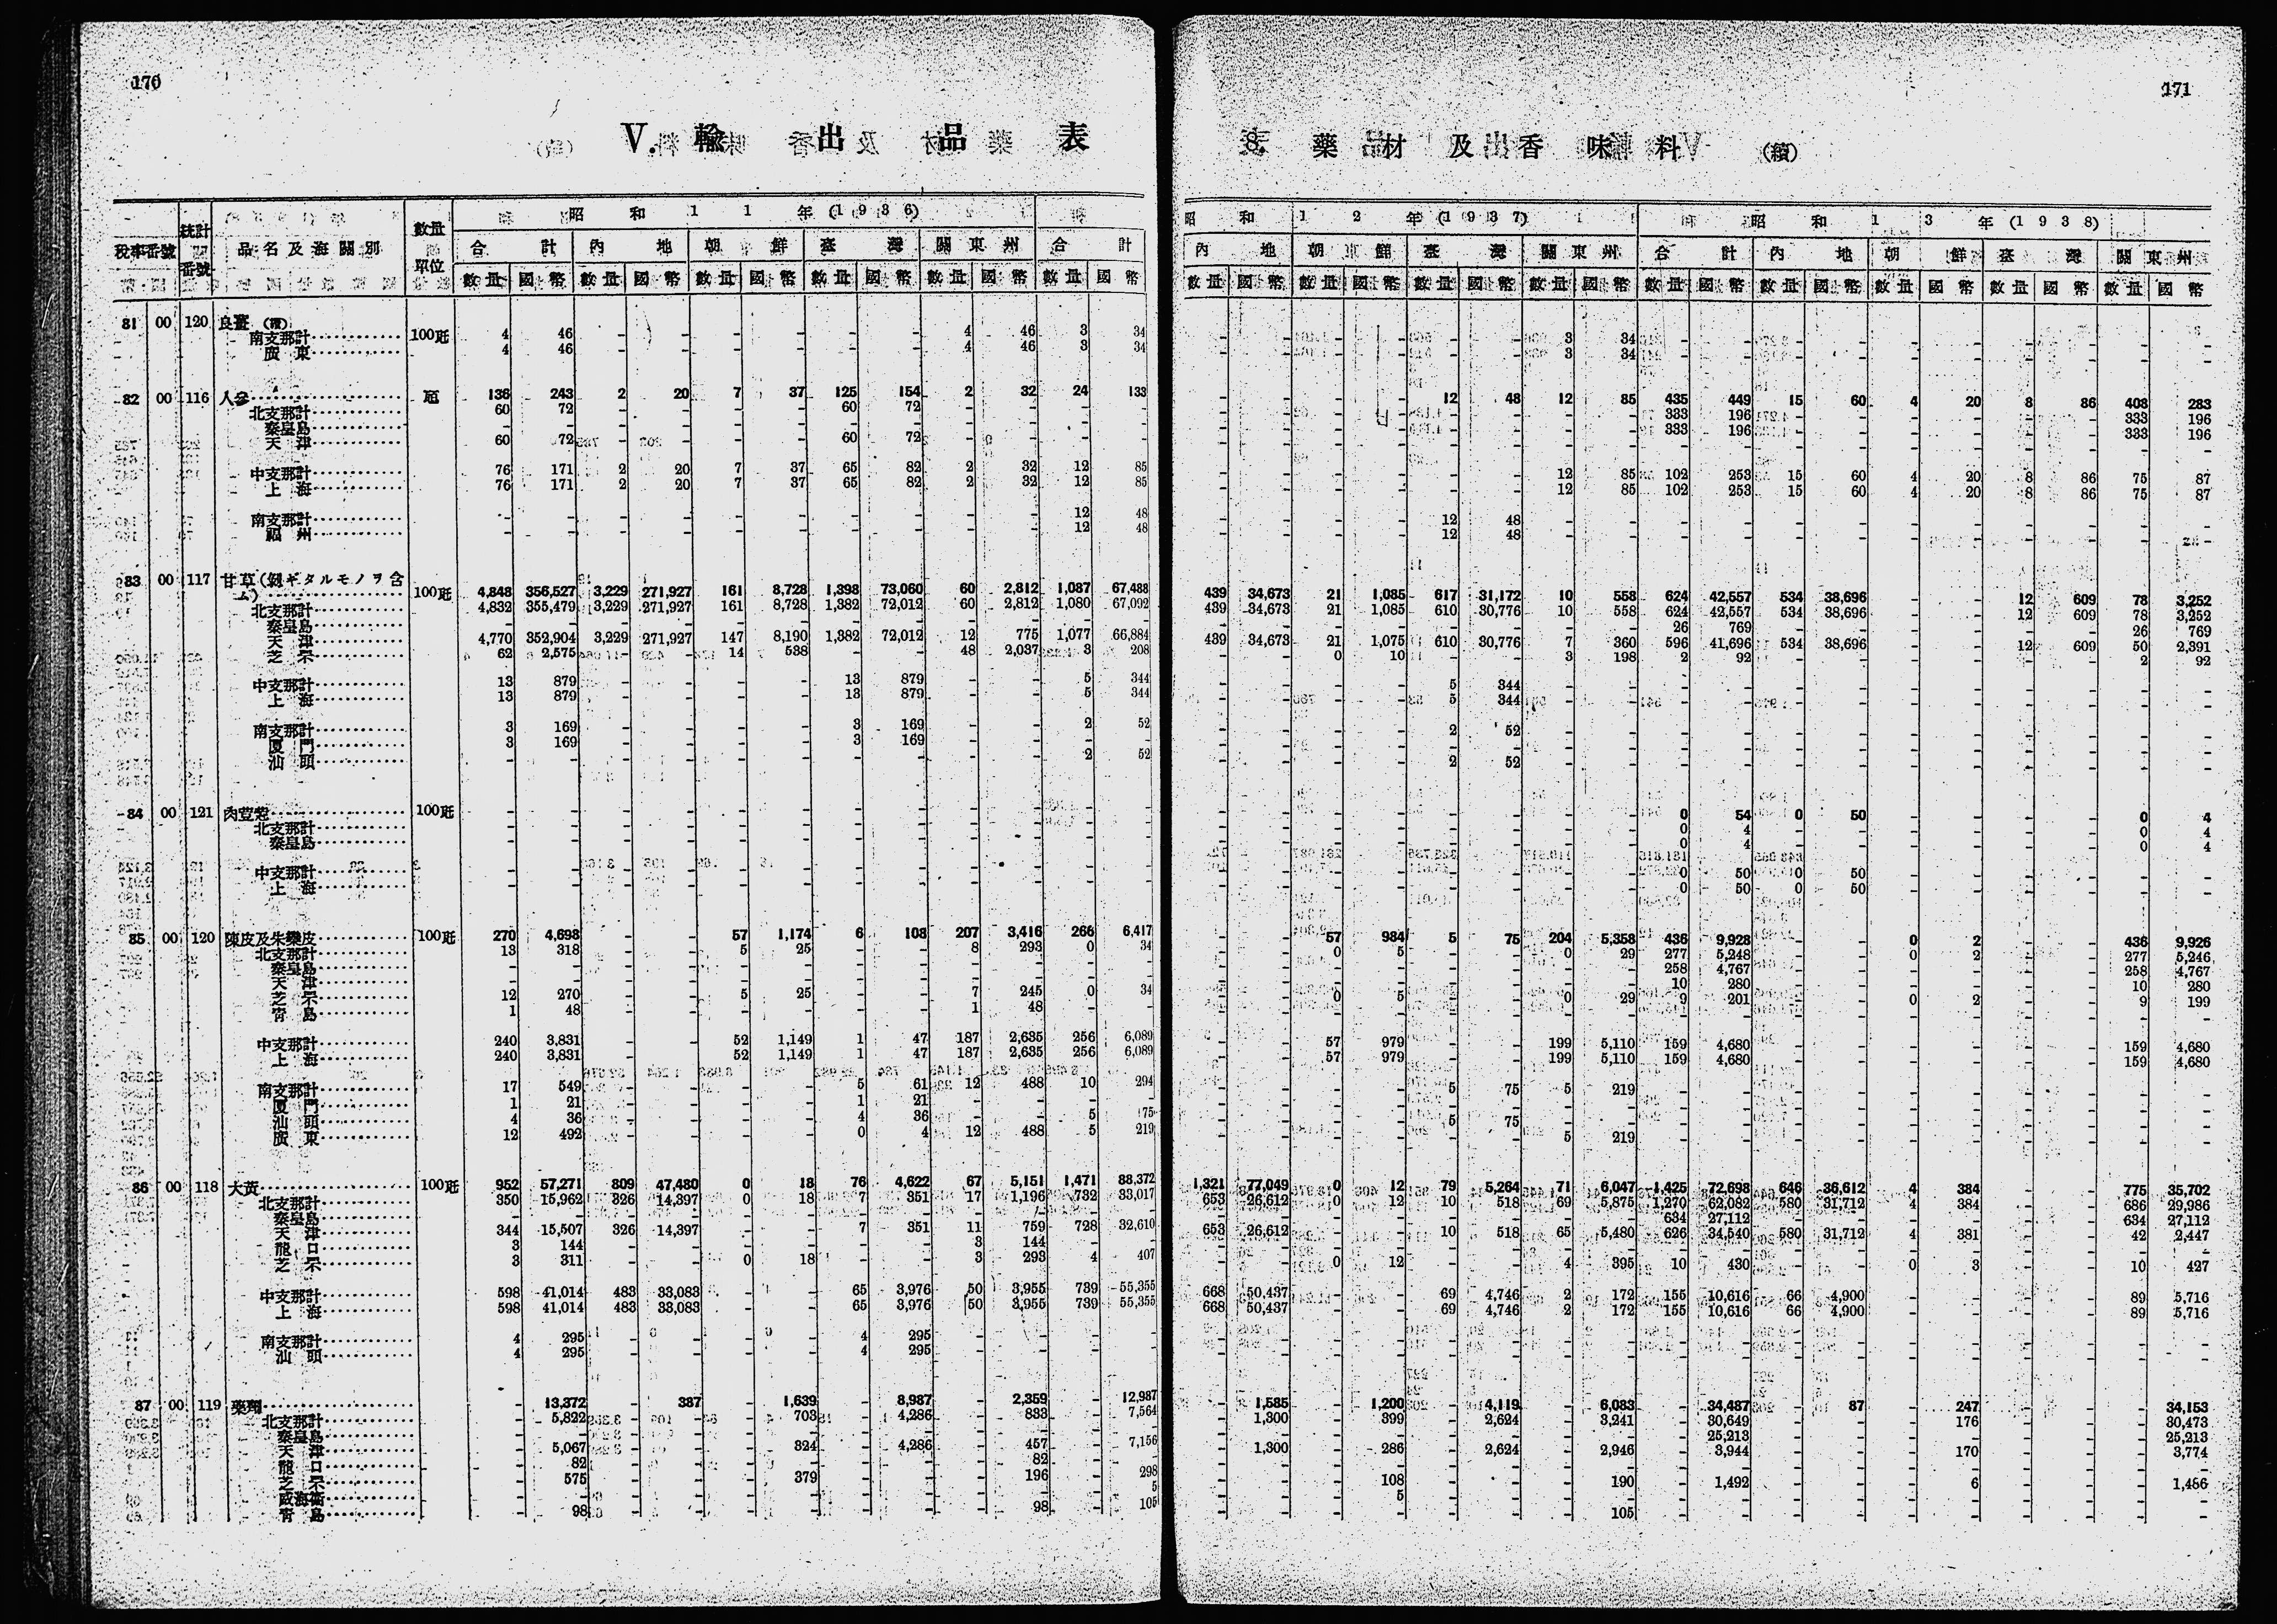 170
V. 輸出品表
昭和11年(1936)
稅率番號 統計番號 品名及海關別 數量單位 合計 內地 朝鮮 臺灣 關東州 合計
數量 國幣 數量 國幣 數量 國幣 數量 國幣 數量 國幣 數量 國幣
81 00 120 良薑 (續)
南支那計 100瓩 4 46 - - - - - - 4 46 3 34
廣東 4 46 - - - - - - 4 46 3 34
82 00 116 人參 瓩 136 243 2 20 7 37 125 154 2 32 24 133
北支那計 60 72 - - - - 60 72 - - - -
秦皇島 - - - - - - - - - - - -
天津 60 72 - - - - 60 72 - - - -
中支那計 76 171 2 20 7 37 65 82 2 32 12 85
上海 76 171 2 20 7 37 65 82 2 32 12 85
南支那計 - - - - - - - - - - 12 48
福州 - - - - - - - - - - 12 48
83 00 117 甘草(剝ギタルモノヲ含
ム) 100瓩 4,848 356,527 3,229 271,927 161 8,728 1,398 73,060 60 2,812 1,087 67,488
北支那計 4,832 355,479 3,229 271,927 161 8,728 1,382 72,012 60 2,812 1,080 67,092
秦皇島 - - - - - - - - - - - -
天津 4,770 352,904 3,229 271,927 147 8,190 1,382 72,012 12 775 1,077 66,884
芝罘 62 2,575 - - 14 538 - - 48 2,037 3 208
中支那計 13 879 - - - - 13 879 - - 5 344
上海 13 879 - - - - 13 879 - - 5 344
南支那計 3 169 - - - - 3 169 - - 2 52
厦門 3 169 - - - - 3 169 - - - -
汕頭 - - - - - - - - - - 2 52
84 00 121 肉荳蔲 100瓩 - - - - - - - - - - - -
北支那計 - - - - - - - - - - - -
秦皇島 - - - - - - - - - - - -
中支那計 - - - - - - - - - - - -
上海 - - - - - - - - - - - -
85 00 120 陳皮及朱欒皮 100瓩 270 4,698 - - 57 1,174 6 108 207 3,416 266 6,417
北支那計 13 318 - - 5 25 - - 8 293 0 34
秦皇島 - - - - - - - - - - - -
天津 - - - - - - - - - - - -
芝罘 12 270 - - 5 25 - - 7 245 0 34
青島 1 48 - - - - - - 1 48 - -
中支那計 240 3,831 - - 52 1,149 1 47 187 2,635 256 6,089
上海 240 3,831 - - 52 1,149 1 47 187 2,635 256 6,089
南支那計 17 549 - - - - 5 61 12 488 10 294
厦門 1 21 - - - - 1 21 - - - -
汕頭 4 36 - - - - 4 36 - - 5 75
廣東 12 492 - - - - 0 4 12 488 5 219
86 00 118 大黃 100瓩 952 57,271 809 47,480 0 18 76 4,622 67 5,151 1,471 88,372
北支那計 350 15,962 326 14,397 0 18 7 351 17 1,196 732 33,017
秦皇島 - - - - - - - - - - - -
天津 344 15,507 326 14,397 - - 7 351 11 759 728 32,610
龍口 3 144 - - - - - - 3 144 - -
芝罘 3 311 - - 0 18 - - 3 293 4 407
中支那計 598 41,014 483 33,083 - - 65 3,976 50 3,955 739 55,355
上海 598 41,014 483 33,083 - - 65 3,976 50 3,955 739 55,355
南支那計 4 295 - - - - 4 295 - - - -
汕頭 4 295 - - - - 4 295 - - - -
87 00 119 藥種 - 13,372 - 387 - 1,639 - 8,987 - 2,359 - 12,987
北支那計 - 5,822 - - - 703 - 4,286 - 833 - 7,564
秦皇島 - - - - - - - - - - - -
天津 - 5,067 - - - 324 - 4,286 - 457 - 7,156
龍口 - 82 - - - - - - - 82 - -
芝罘 - 575 - - - 379 - - - 196 - 298
威海衞 - - - - - - - - - - - 5
青島 - 98 - - - - - - - 98 - 105
171
8. 藥材及香味料 (續)
昭和12年(1937) 昭和13年(1938)
內地 朝鮮 臺灣 關東州 合計 內地 朝鮮 臺灣 關東州
數量 國幣 數量 國幣 數量 國幣 數量 國幣 數量 國幣 數量 國幣 數量 國幣 數量 國幣 數量 國幣
- - - - - - 3 34 - - - - - - - - - -
- - - - - - 3 34 - - - - - - - - - -
- - - - 12 48 12 85 435 449 15 60 4 20 8 86 408 283
- - - - - - - - 333 196 - - - - - - 333 196
- - - - - - - - 333 196 - - - - - - 333 196
- - - - - - - - - - - - - - - - - -
- - - - - - 12 85 102 253 15 60 4 20 8 86 75 87
- - - - - - 12 85 102 253 15 60 4 20 8 86 75 87
- - - - 12 48 - - - - - - - - - - - -
- - - - 12 48 - - - - - - - - - - - -
439 34,673 21 1,085 617 31,172 10 558 624 42,557 534 38,696 - - 12 609 78 3,252
439 34,673 21 1,085 610 30,776 10 558 624 42,557 534 38,696 - - 12 609 78 3,252
- - - - - - - - 26 769 - - - - - - 26 769
439 34,673 21 1,075 610 30,776 7 360 596 41,696 534 38,696 - - 12 609 50 2,391
- - 0 10 - - 3 198 2 92 - - - - - - 2 92
- - - - 5 344 - - - - - - - - - - - -
- - - - 5 344 - - - - - - - - - - - -
- - - - 2 52 - - - - - - - - - - - -
- - - - - - - - - - - - - - - - - -
- - - - 2 52 - - - - - - - - - - - -
- - - - - - - - 0 54 0 50 - - - - 0 4
- - - - - - - - 0 4 - - - - - - 0 4
- - - - - - - - 0 4 - - - - - - 0 4
- - - - - - - - 0 50 0 50 - - - - - -
- - - - - - - - 0 50 0 50 - - - - - -
- - 57 984 5 75 204 5,358 436 9,928 - - 0 2 - - 436 9,926
- - 0 5 - - 0 29 277 5,248 - - 0 2 - - 277 5,246
- - - - - - - - 258 4,767 - - - - - - 258 4,767
- - - - - - - - 10 280 - - - - - - 10 280
- - 0 5 - - 0 29 9 201 - - 0 2 - - 9 199
- - - - - - - - - - - - - - - - - -
- - 57 979 - - 199 5,110 159 4,680 - - - - - - 159 4,680
- - 57 979 - - 199 5,110 159 4,680 - - - - - - 159 4,680
- - - - 5 75 5 219 - - - - - - - - - -
- - - - - - - - - - - - - - - - - -
- - - - 5 75 - - - - - - - - - - - -
- - - - - - 5 219 - - - - - - - - - -
1,321 77,049 0 12 79 5,264 71 6,047 1,425 72,698 646 36,612 4 384 - - 775 35,702
653 26,612 0 12 10 518 69 5,875 1,270 62,082 580 31,712 4 384 - - 686 29,986
- - - - - - - - 634 27,112 - - - - - - 634 27,112
653 26,612 - - 10 518 65 5,480 626 34,540 580 31,712 4 381 - - 42 2,447
- - - - - - - - - - - - - - - - - -
- - 0 12 - - 4 395 10 430 - - 0 3 - - 10 427
668 50,437 - - 69 4,746 2 172 155 10,616 66 4,900 - - - - 89 5,716
668 50,437 - - 69 4,746 2 172 155 10,616 66 4,900 - - - - 89 5,716
- - - - - - - - - - - - - - - - - -
- - - - - - - - - - - - - - - - - -
- 1,585 - 1,200 - 4,119 - 6,083 - 34,487 - 87 - 247 - - - 34,153
- 1,300 - 399 - 2,624 - 3,241 - 30,649 - - - 176 - - - 30,473
- - - - - - - - - 25,213 - - - - - - - 25,213
- 1,300 - 286 - 2,624 - 2,946 - 3,944 - - - 170 - - - 3,774
- - - - - - - - - - - - - - - - - -
- - - 108 - - - 190 - 1,492 - - - 6 - - - 1,486
- - - 5 - - - - - - - - - - - - - -
- - - - - - - 105 - - - - - - - - - -